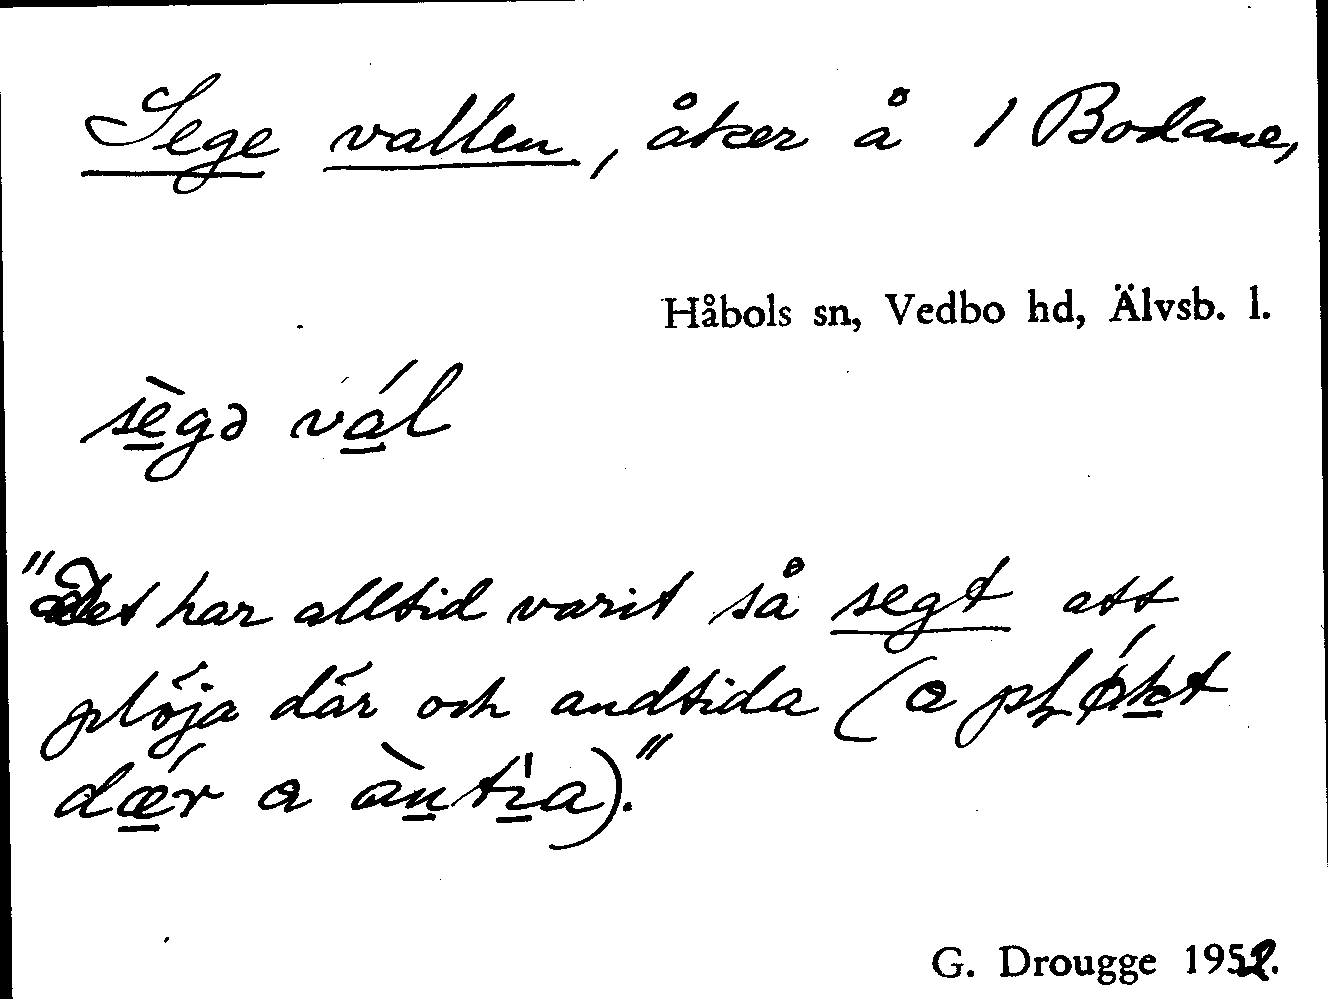 Sege vallen, åker å 1 Bodane,
Håbols sn, Vedbo hd, Älvsb. l.
sègə vál
"Det har alltid varit så segt att
plöja där och andtida (a pḷǿkt
dǽr a àntı̍a)."
G. Drougge 1952.